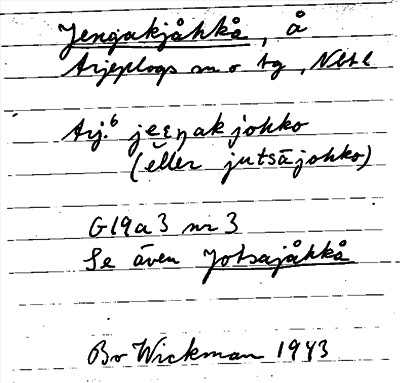 Jengakjåkkå, å
Arjeplogs sn o tg, Nbtl
Arj.⁶ jeεŋak johko
(eller jutsājohko)
G19a3 nr 3
Se även Jotsajåkkå
Bo Wickman 1943